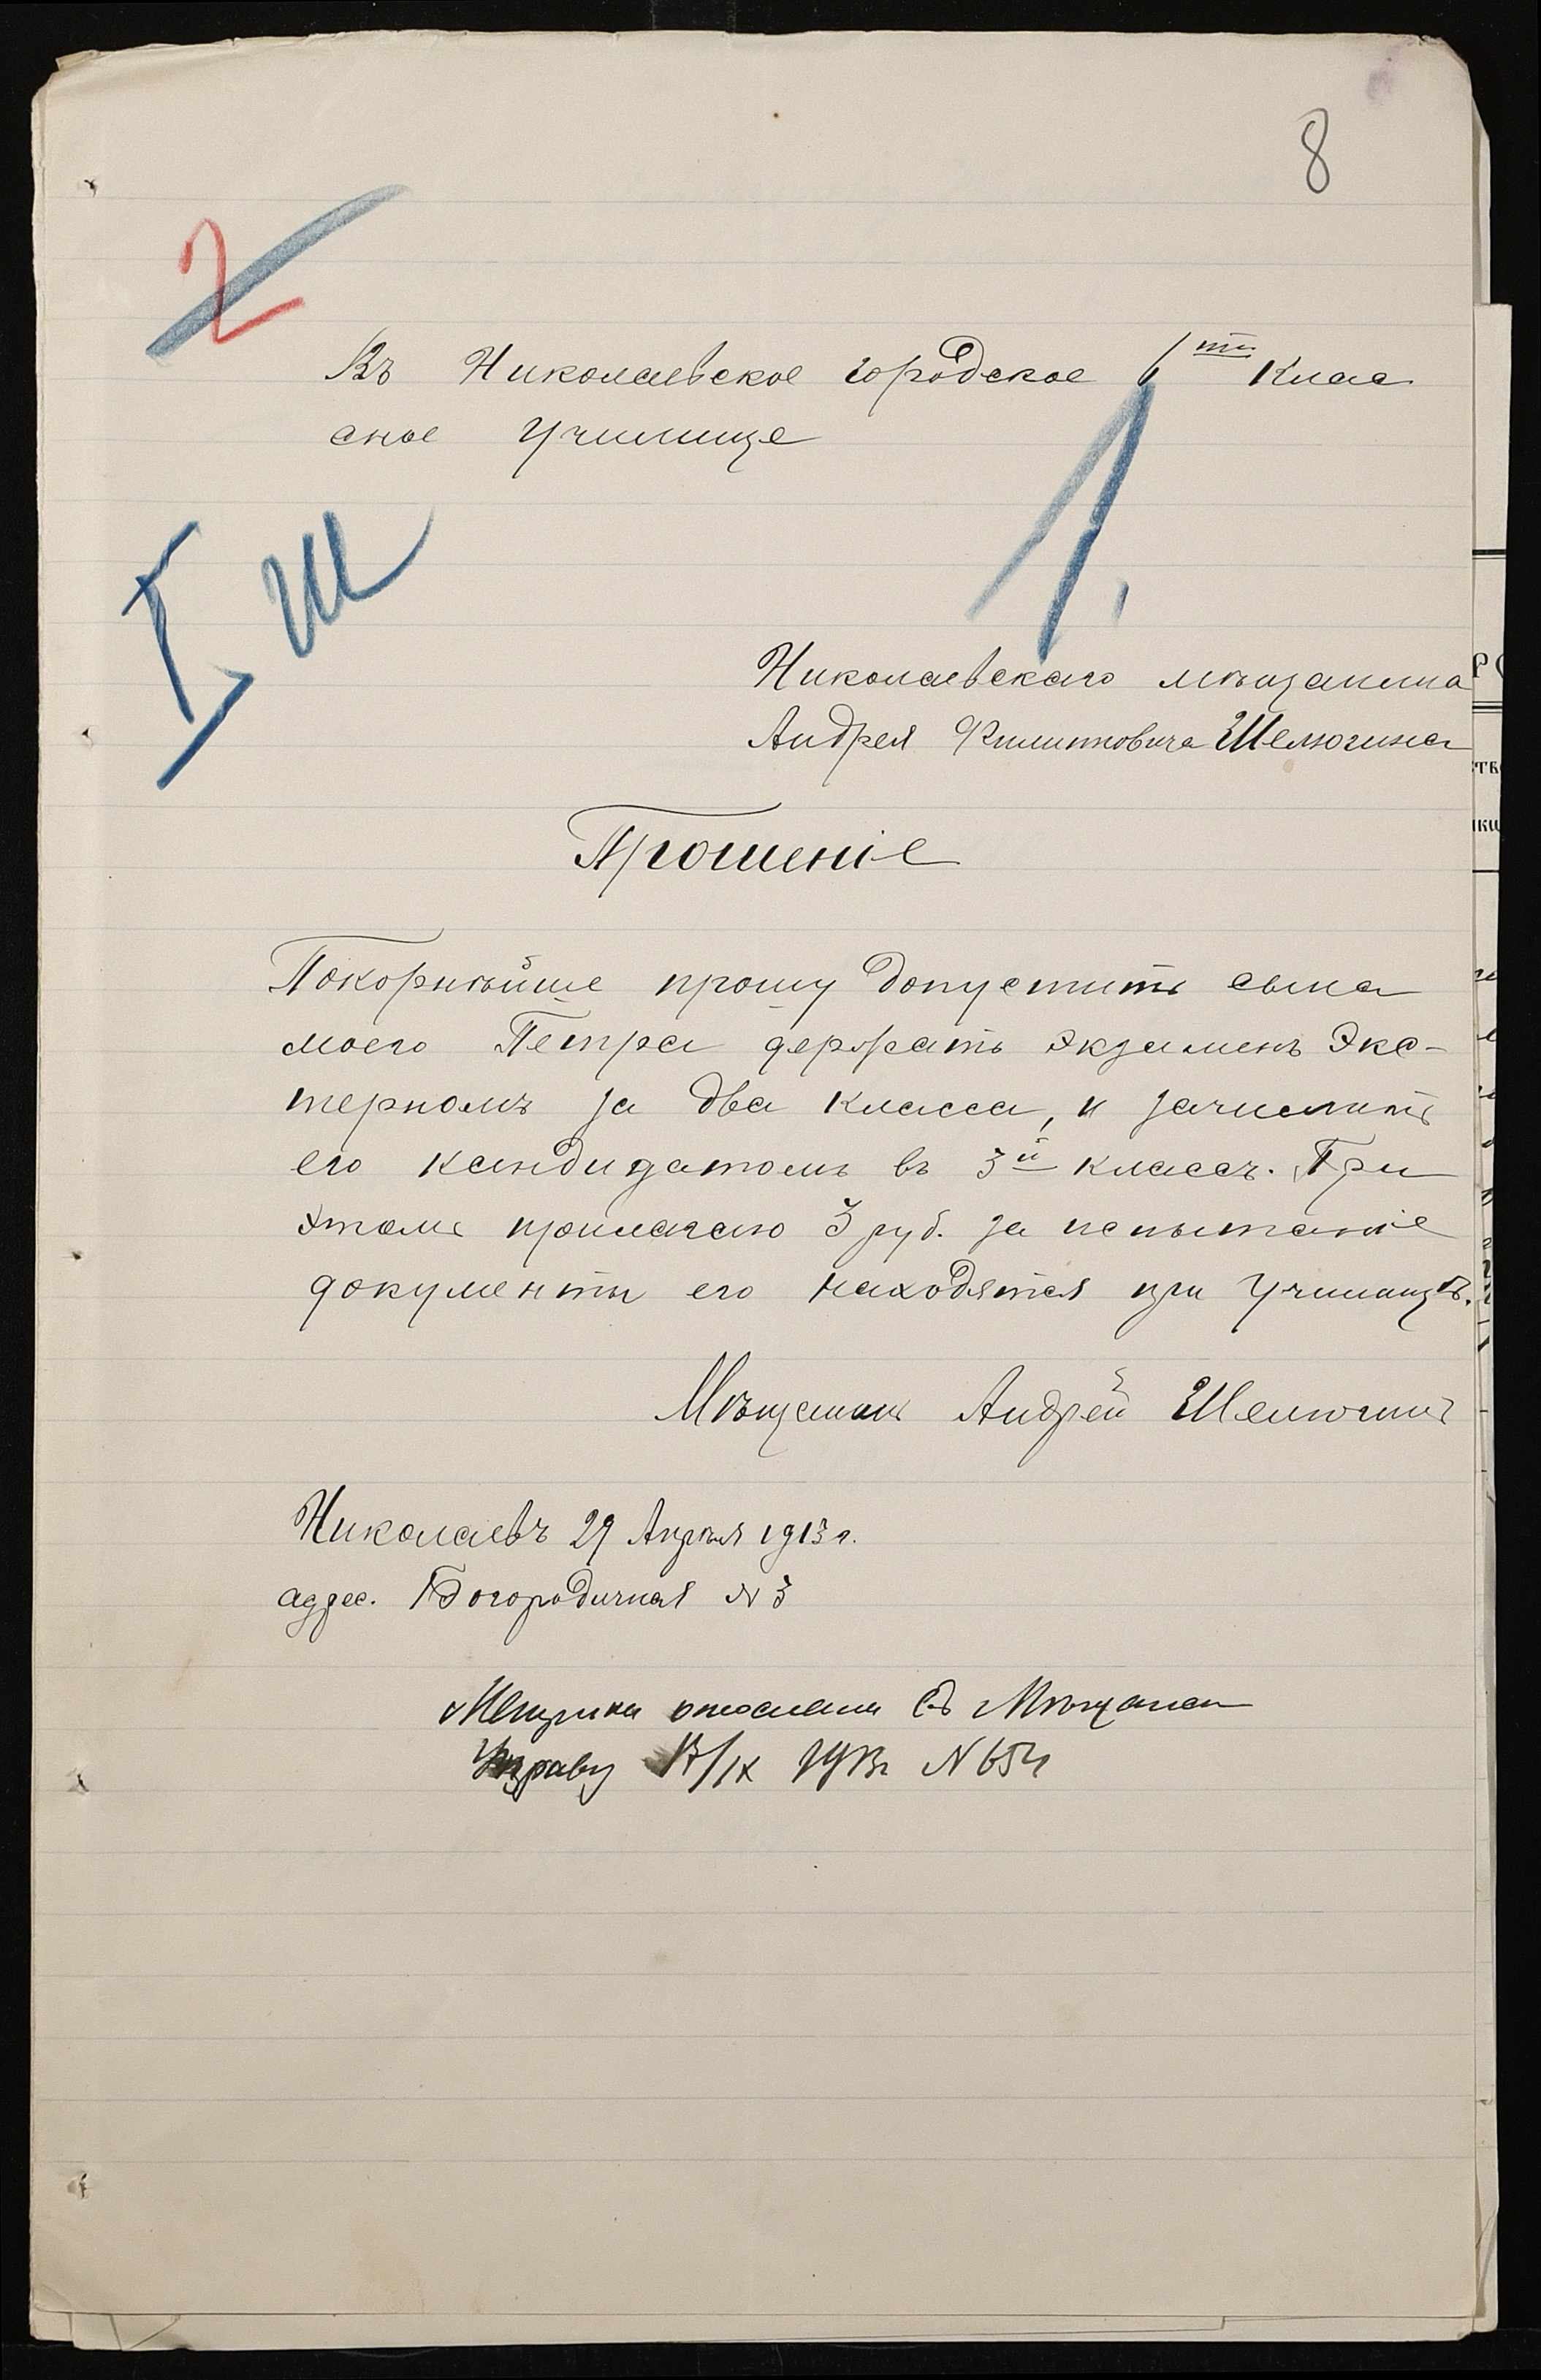 8
2
Въ Николаевское городское 6ти Клас
сное Училище
1.
Николаевскаго мѣщанина
Андрея Филипповича Шелюгина
Прошеніе
Покорнѣйше прошу допустить сына
моего Петра держать экзаменъ Экс-
терномъ за два класса, и зачислить
его кандидатомъ въ 3й классъ. При
этомъ прилагаю 3 руб. за испытаніе
документы его находятся при Училищѣ.
Мѣщанинъ Андрей Шелюгинъ
Николаевъ 29 Апрѣля 1913 г.
адрес. Богородичная № 3
Метрика отослана въ Мѣщанск
Управу /IX 1913г N 654